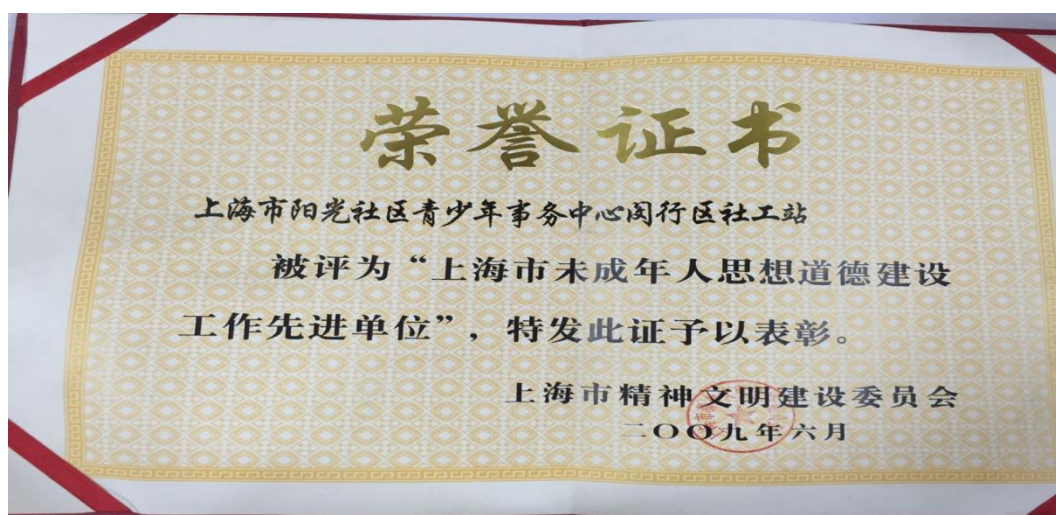 荣誉证书
上海市阳光社区青少年事务中心闵行区社工站
被评为“上海市未成年人思想道德建设
工作先进单位”，特发此证予以表彰。
上海市精神文明建设委员会
二〇〇九年六月